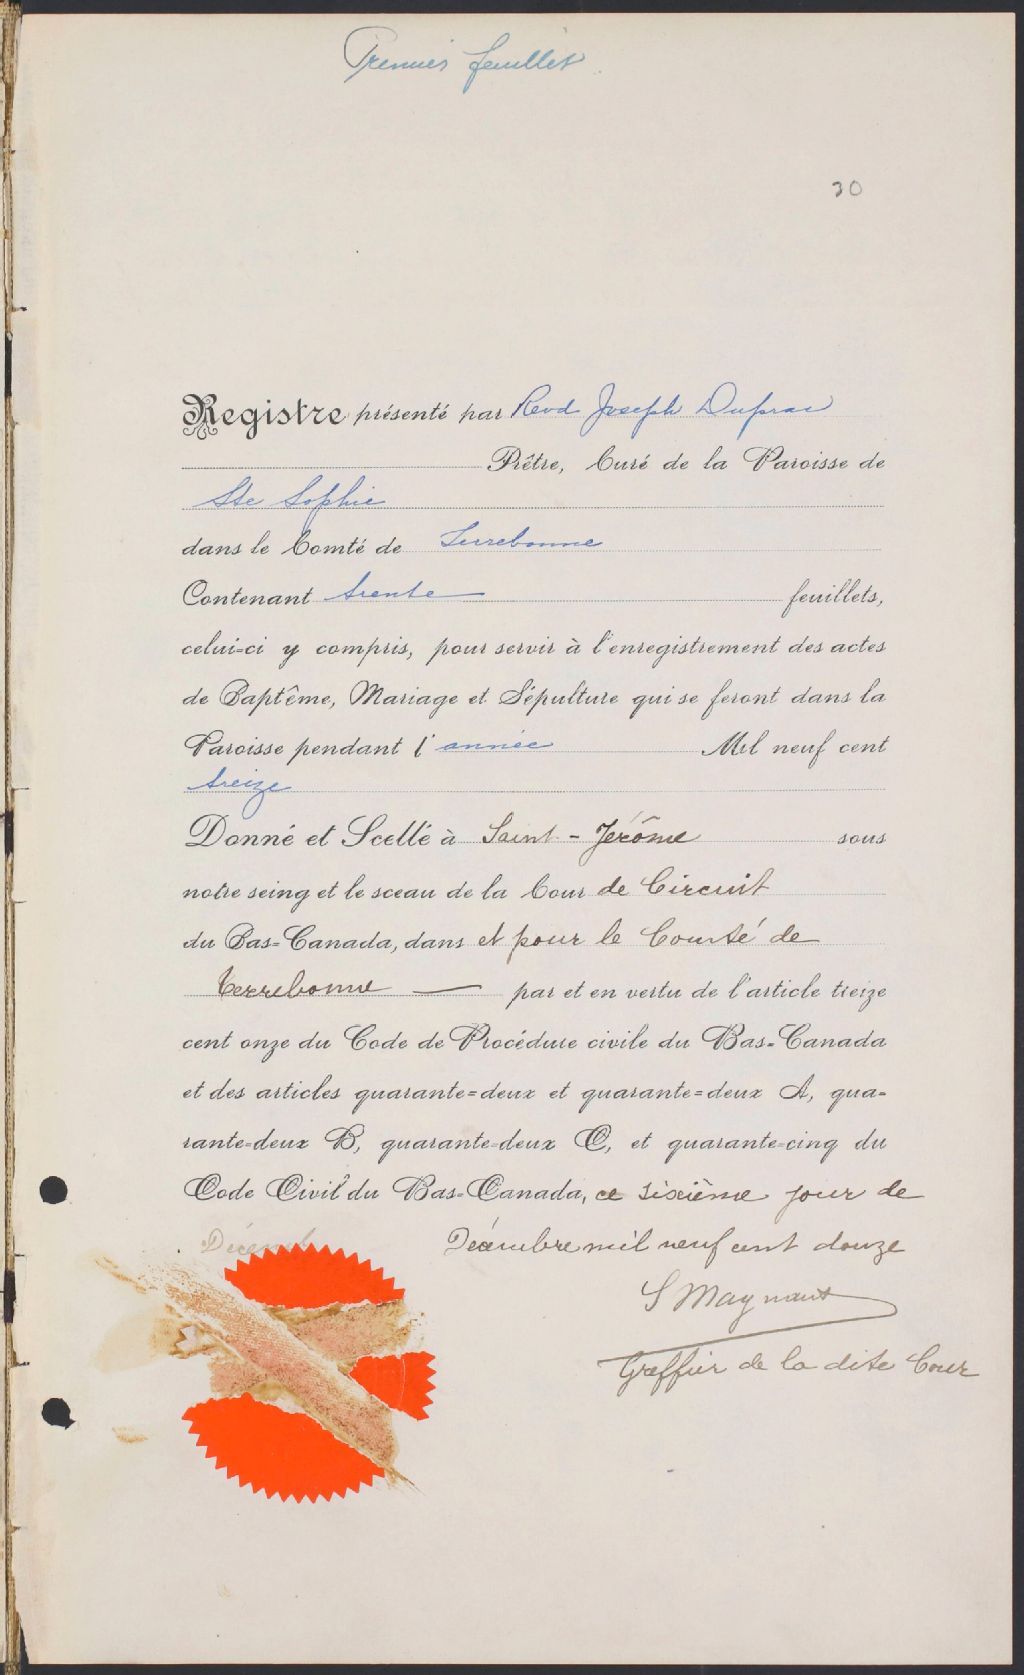 Premier feuillet
30
Registre présenté par Revd Joseph Duprac
Prêtre, Curé de la Paroisse de
Ste Sophie
dans le Comté de Terrebonne
Contenant trente feuillets,
celui=ci y compris, pour servir à l'enregistrement des actes
de Baptême, Mariage et Sépulture qui se feront dans la
Paroisse pendant l'année Mil neuf cent
treize
Donné et Scellé à Saint-Jérôme sous
notre seing et le sceau de la Cour de Circuit
du Bas=Canada, dans et pour le Comté de
Terrebonne — par et en vertu de l'article treize
cent onze du Code de Procédure civile du Bas=Canada
et des articles quarante=deux et quarante=deux A, qua=
rante=deux B, quarante=deux C, et quarante=cinq du
Code Civil du Bas=Canada, ce sixième jour de
Décembre mil neuf cent douze
Greffier de la dite Cour